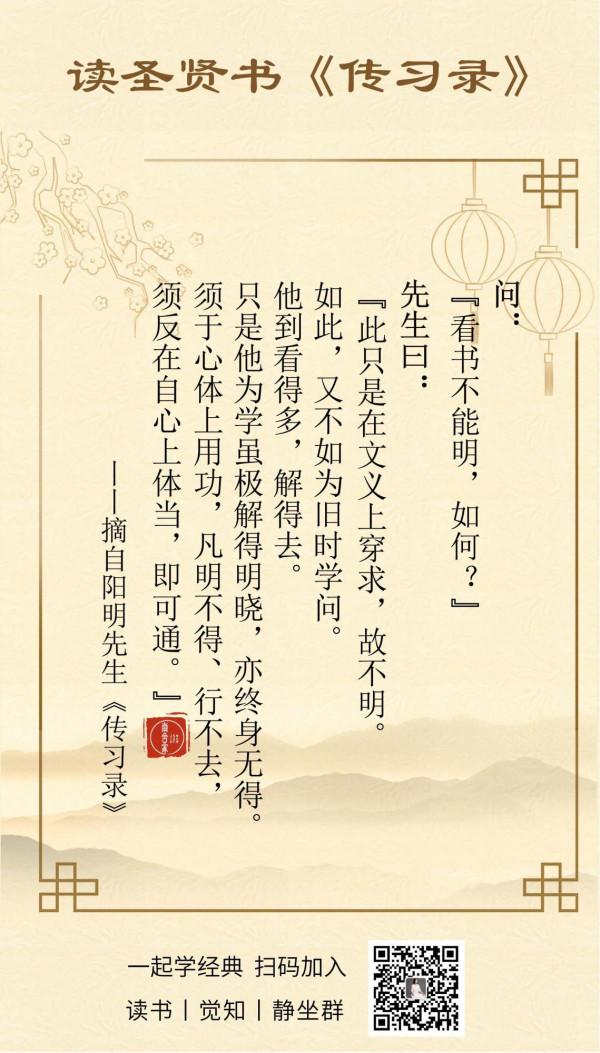 读圣贤书《传习录》
问：
『看书不能明，如何？』
先生曰：
『此只是在文义上穿求，故不明。
如此，又不如为旧时学问。
他到看得多，解得去。
只是他为学虽极解得明晓，亦终身无得。
须于心体上用功，凡明不得、行不去，
须反在自心上体当，即可通。』
——摘自阳明先生《传习录》
一起学经典 扫码加入
读书丨觉知丨静坐群